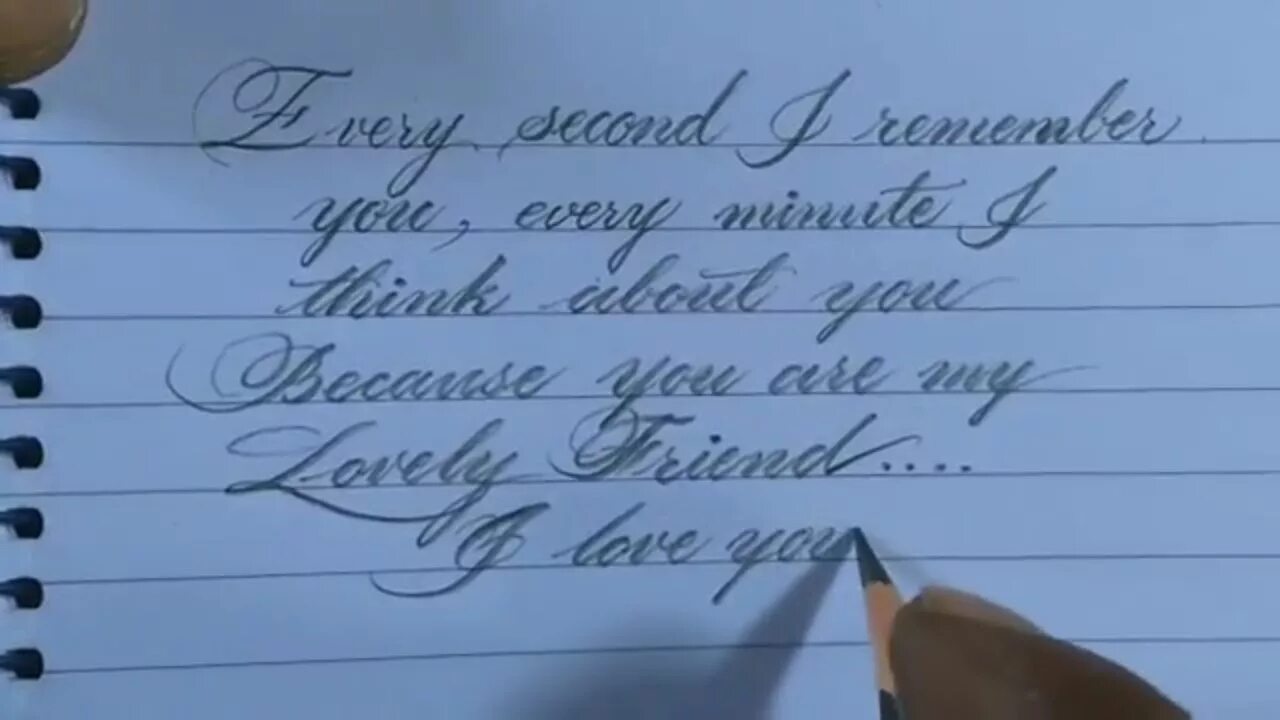 Every second I remember
you, every minute I
think about you
Because you are my
Lovely Friend....
I love you